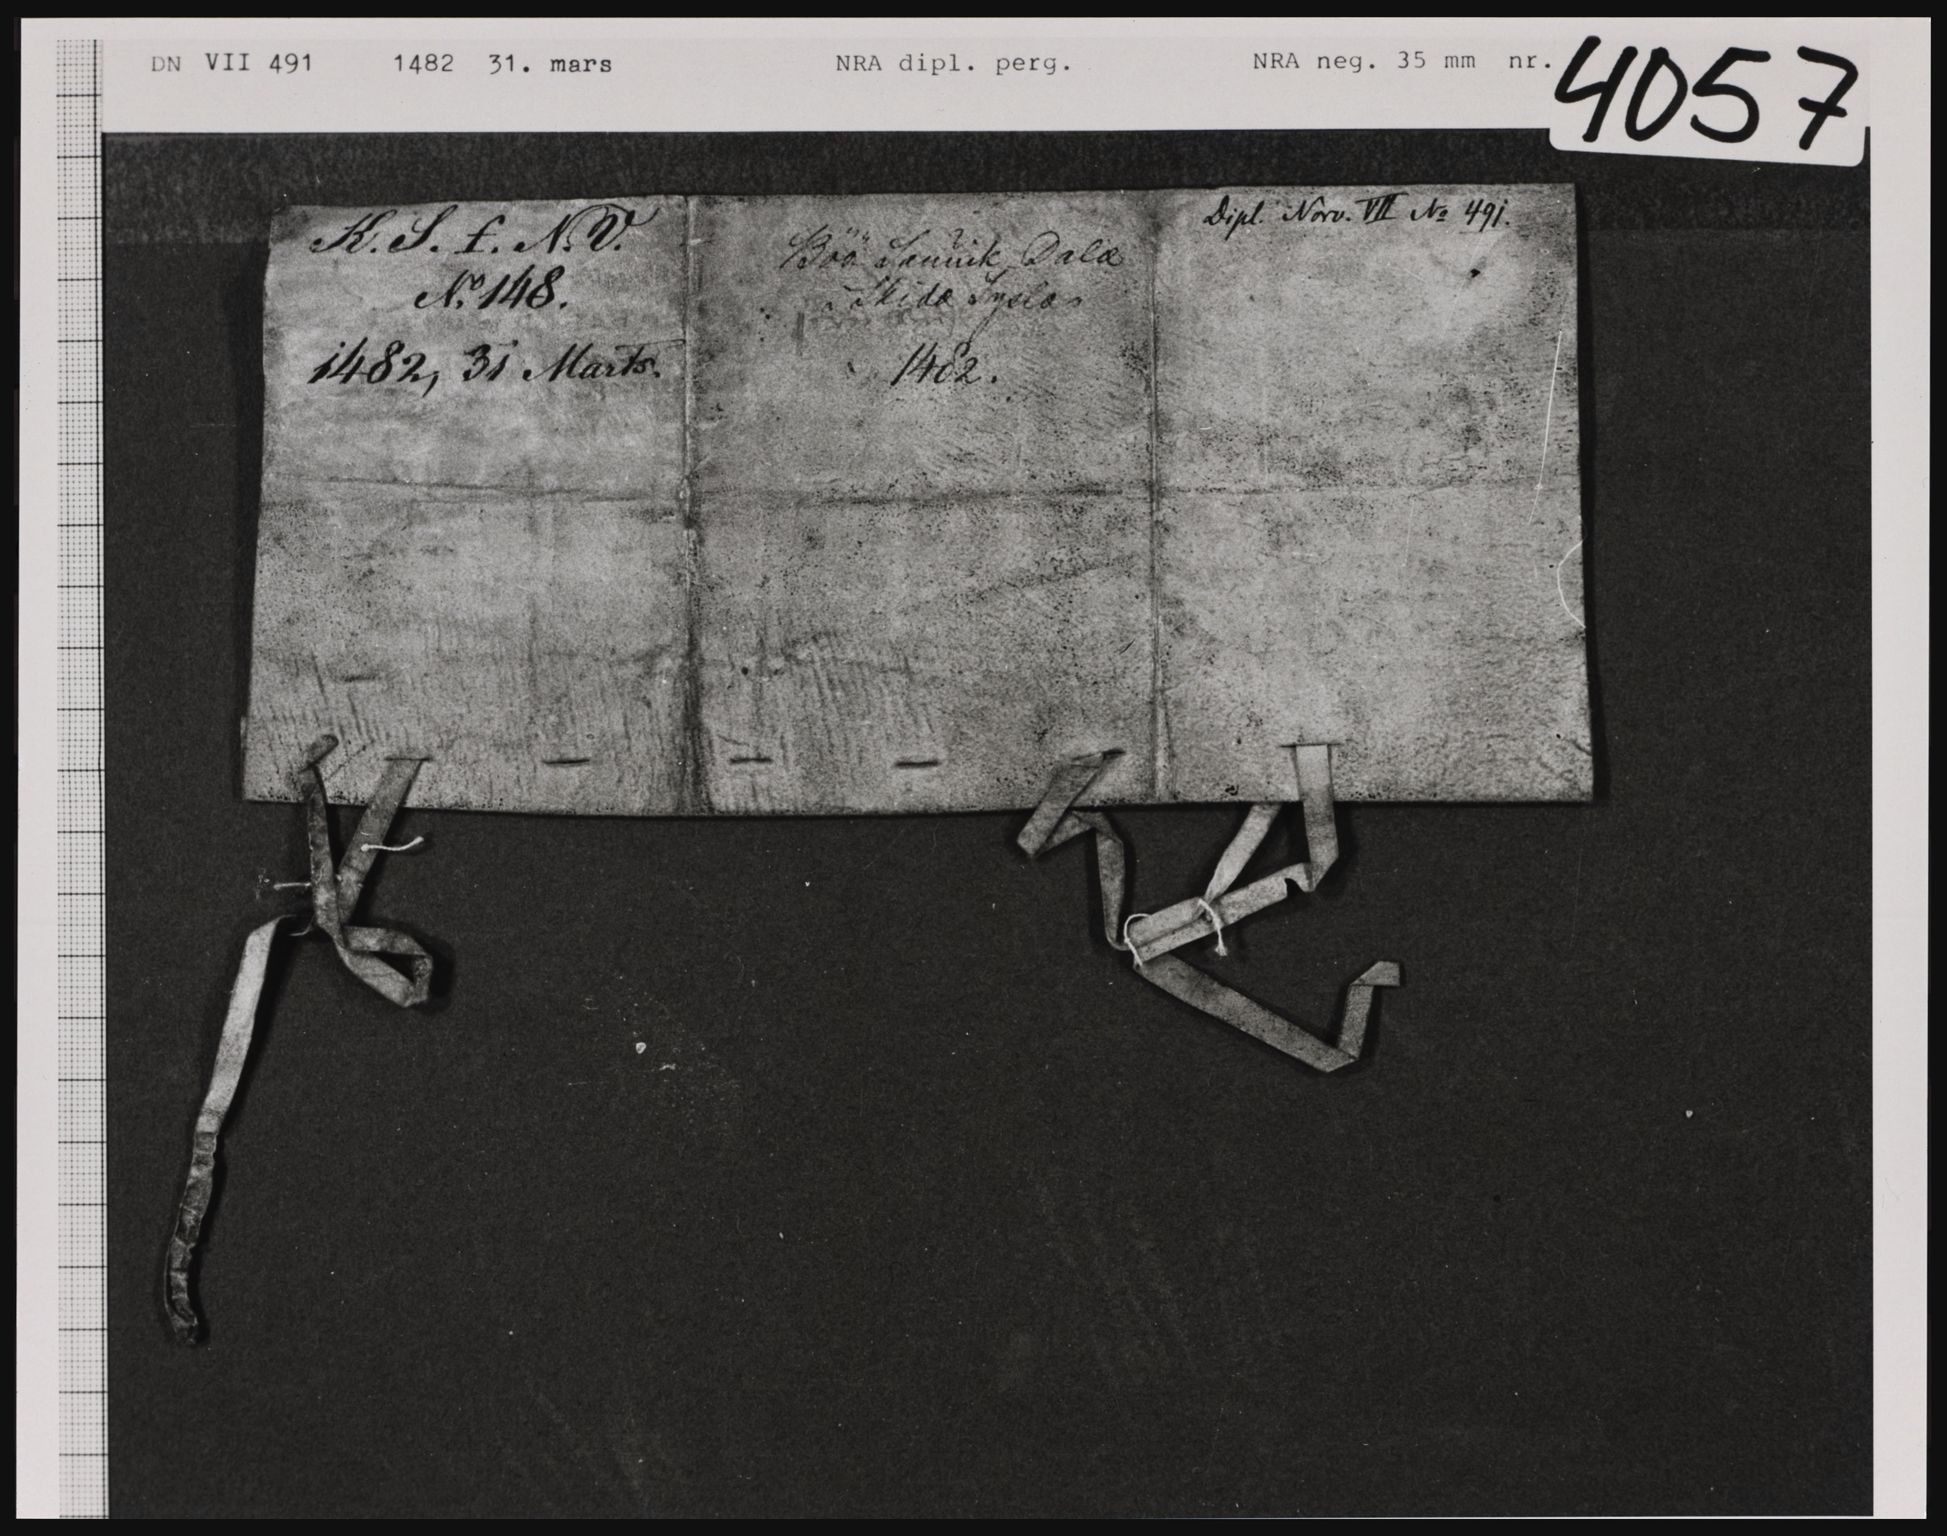 DN VII 491 1482 31. mars NRA dipl. perg. NRA neg. 35 mm nr. 4057
K. S. f. N. V.
No 148.
1482, 31 Marts.
Böö Dalæ
Skidæ Syslæ
1482.
Dipl. Norv. VII No 491.